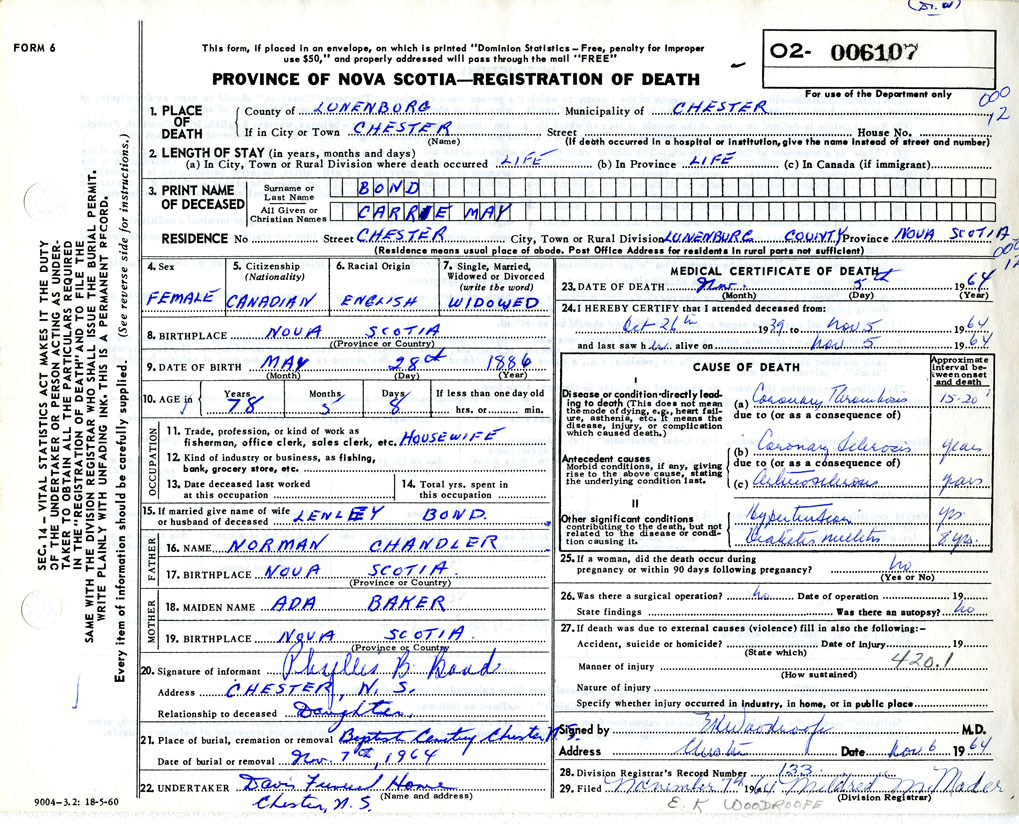 (Dr. W)
FORM 6
This form, if placed in an envelope, on which is printed "Dominion Statistics – Free, penalty for improper
use $50," and properly addressed will pass through the mail "FREE"
PROVINCE OF NOVA SCOTIA—REGISTRATION OF DEATH
02- 006107
For use of the Department only
000
12
1. PLACE OF DEATH
County of LUNENBURG Municipality of CHESTER
If in City or Town CHESTER Street House No.
(Name) (If death occurred in a hospital or institution, give the name instead of street and number)
2. LENGTH OF STAY (in years, months and days)
(a) In City, Town or Rural Division where death occurred LIFE (b) In Province LIFE (c) In Canada (if immigrant)
3. PRINT NAME OF DECEASED
Surname or Last Name BOND
All Given or Christian Names CARRIE MAY
RESIDENCE No Street CHESTER City, Town or Rural Division LUNENBURG COUNTY Province NOVA SCOTIA
(Residence means usual place of abode. Post Office Address for residents in rural parts not sufficient)
000
12
4. Sex FEMALE
5. Citizenship (Nationality) CANADIAN
6. Racial Origin ENGLISH
7. Single, Married, Widowed or Divorced (write the word) WIDOWED
8. BIRTHPLACE NOVA SCOTIA
(Province or Country)
9. DATE OF BIRTH MAY 28th 1886
(Month) (Day) (Year)
10. AGE in Years 78 Months 5 Days 8 If less than one day old hrs. or min.
OCCUPATION
11. Trade, profession, or kind of work as
fisherman, office clerk, sales clerk, etc. HOUSEWIFE
12. Kind of industry or business, as fishing,
bank, grocery store, etc.
13. Date deceased last worked
at this occupation
14. Total yrs. spent in
this occupation
15. If married give name of wife
or husband of deceased LENLEY BOND.
FATHER
16. NAME NORMAN CHANDLER
17. BIRTHPLACE NOVA SCOTIA
(Province or Country)
MOTHER
18. MAIDEN NAME ADA BAKER
19. BIRTHPLACE NOVA SCOTIA
(Province or Country)
20. Signature of informant Phyllis B. Bond
Address CHESTER, N.S.
Relationship to deceased Daughter.
21. Place of burial, cremation or removal Baptist Cemetry Chester N.S.
Date of burial or removal Nov. 7th, 1964
22. UNDERTAKER Davis Funeral Home
(Name and address)
Chester, N.S.
9004-3.2: 18-5-60
MEDICAL CERTIFICATE OF DEATH
23. DATE OF DEATH Nov. 5th 1964
(Month) (Day) (Year)
24. I HEREBY CERTIFY that I attended deceased from:
Oct 26th 1939 to Nov. 5 1964
and last saw her alive on Nov. 5 1964
CAUSE OF DEATH
Approximate interval between onset and death
I
Disease or condition directly leading to death (This does not mean the mode of dying, e.g., heart failure, asthenia, etc. It means the disease, injury, or complication which caused death.)
(a) Coronary Thrombosis 15-20'
due to (or as a consequence of)
Antecedent causes
Morbid conditions, if any, giving rise to the above cause, stating the underlying condition last.
(b) Coronary Sclerosis years
due to (or as a consequence of)
(c) Arteriosclerosis years
II
Other significant conditions
contributing to the death, but not related to the disease or condition causing it.
Hypertension yrs
Diabetis mellitis 8 yrs.
25. If a woman, did the death occur during
pregnancy or within 90 days following pregnancy? no
(Yes or No)
26. Was there a surgical operation? no Date of operation 19
State findings Was there an autopsy? no
27. If death was due to external causes (violence) fill in also the following:–
Accident, suicide or homicide? Date of injury 19
(State which)
420.1
Manner of injury
(How sustained)
Nature of injury
Specify whether injury occurred in industry, in home, or in public place
Signed by EKWoodroofe M.D.
Address Chester Date Nov. 6 1964
28. Division Registrar's Record Number 133
29. Filed November 7th 1964 Mildred M. Mader
(Division Registrar)
E. K WOODROOFE
SEC. 14 – VITAL STATISTICS ACT MAKES IT THE DUTY
OF THE UNDERTAKER OR PERSON ACTING AS UNDER-
TAKER TO OBTAIN ALL THE PARTICULARS REQUIRED
IN THE "REGISTRATION OF DEATH" AND TO FILE THE
SAME WITH THE DIVISION REGISTRAR WHO SHALL ISSUE THE BURIAL PERMIT.
WRITE PLAINLY WITH UNFADING INK. THIS IS A PERMANENT RECORD.
Every item of information should be carefully supplied. (See reverse side for instructions.)